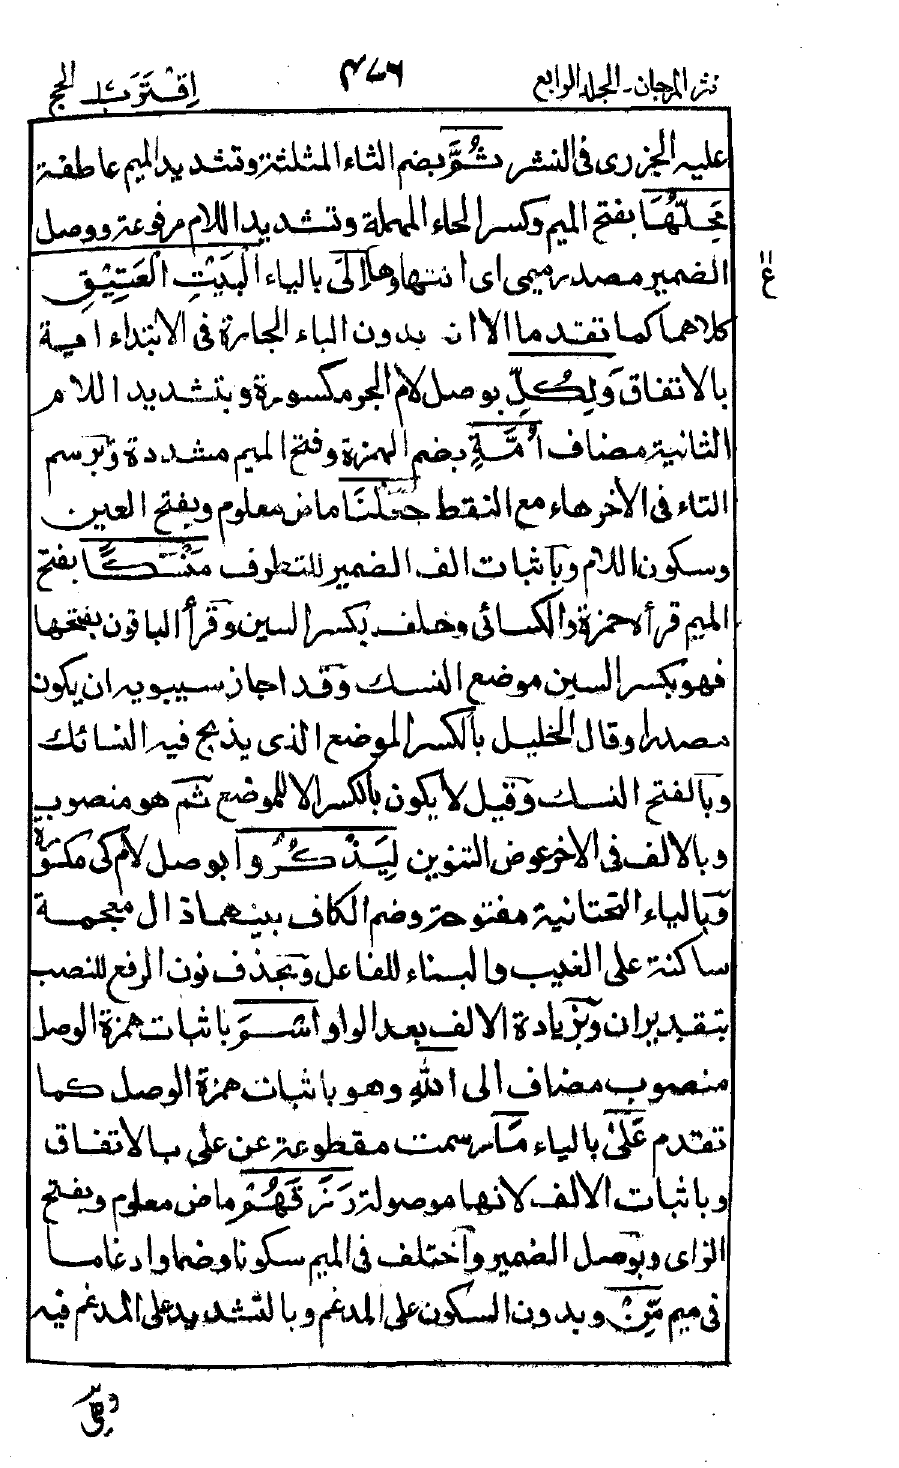 نثر المرجان۔ المجلد الرابع ٤٧٦ اِقْتَرَبَ ١٧ الحج
عليه الجزرى فى النشر ثُمَّ بضم الثاء المثلثة وتشديد الميم عاطفة
مَحِلُّهَا بفتح الميم وكسر الحاء المهملة وتشديد اللام مرفوعة ووصل
الضمير مصدر ميمى اى انتهاؤها إلَى بالياء الْبَيْتِ الْعَتِيْقِ
كلاهما كما تقدما الا ان بدون الباء الجارة فى الابتداء اٰية
بالاتفاق وَلِكُلِّ بوصل لام الجر مكسورة وبتشديد اللام
الثانية مضاف اُمَّةٍ بضم الهمزة وفتح الميم مشددة وبرسم
التاء فى الاٰخر هاء مع النقط جَعَلْنَا ماض معلوم وبفتح العين
وسكون اللام وباثبات الف الضمير للتطرف مَنْسَكًا بفتح
الميم قرأه حمزة والكسائى وخلف بكسر السين وقرأ الباقون بفتحها
فهو بكسر السين موضع النسك وقد اجاز سيبويه ان يكون
مصدرا وقال الخليل بالكسر الموضع الذى يذبح فيه النسائك
وبالفتح النسك وقيل لا يكون بالكسر الا للموضع ثم هو منصوب
وبالالف فى الاٰخر عوض التنوين لِيَذْكُرُوا بوصل لام كى مكسورة
وبالياء التحتانية مفتوحة وضم الكاف بينهما ذال معجمة
ساكنة على الغيب والبناء للفاعل وبحذف نون الرفع للنصب
بتقدير ان وبزيادة الالف بعد الواو اسْمَ باثبات همزة الوصل
منصوب مضاف الى اللهِ وهو باثبات همزة الوصل كما
تقدم عَلىٰ بالياء مَا رسمت مقطوعة عن على بالاتفاق
وباثبات الالف لانها موصولة رَزَقَهُمْ ماض معلوم وبفتح
الزاى وبوصل الضمير واختلف فى الميم سكونا وضما وادغاما
فى ميم مِّنْ وبدون السكون على المدغم وبالتشديد على المدغم فيه